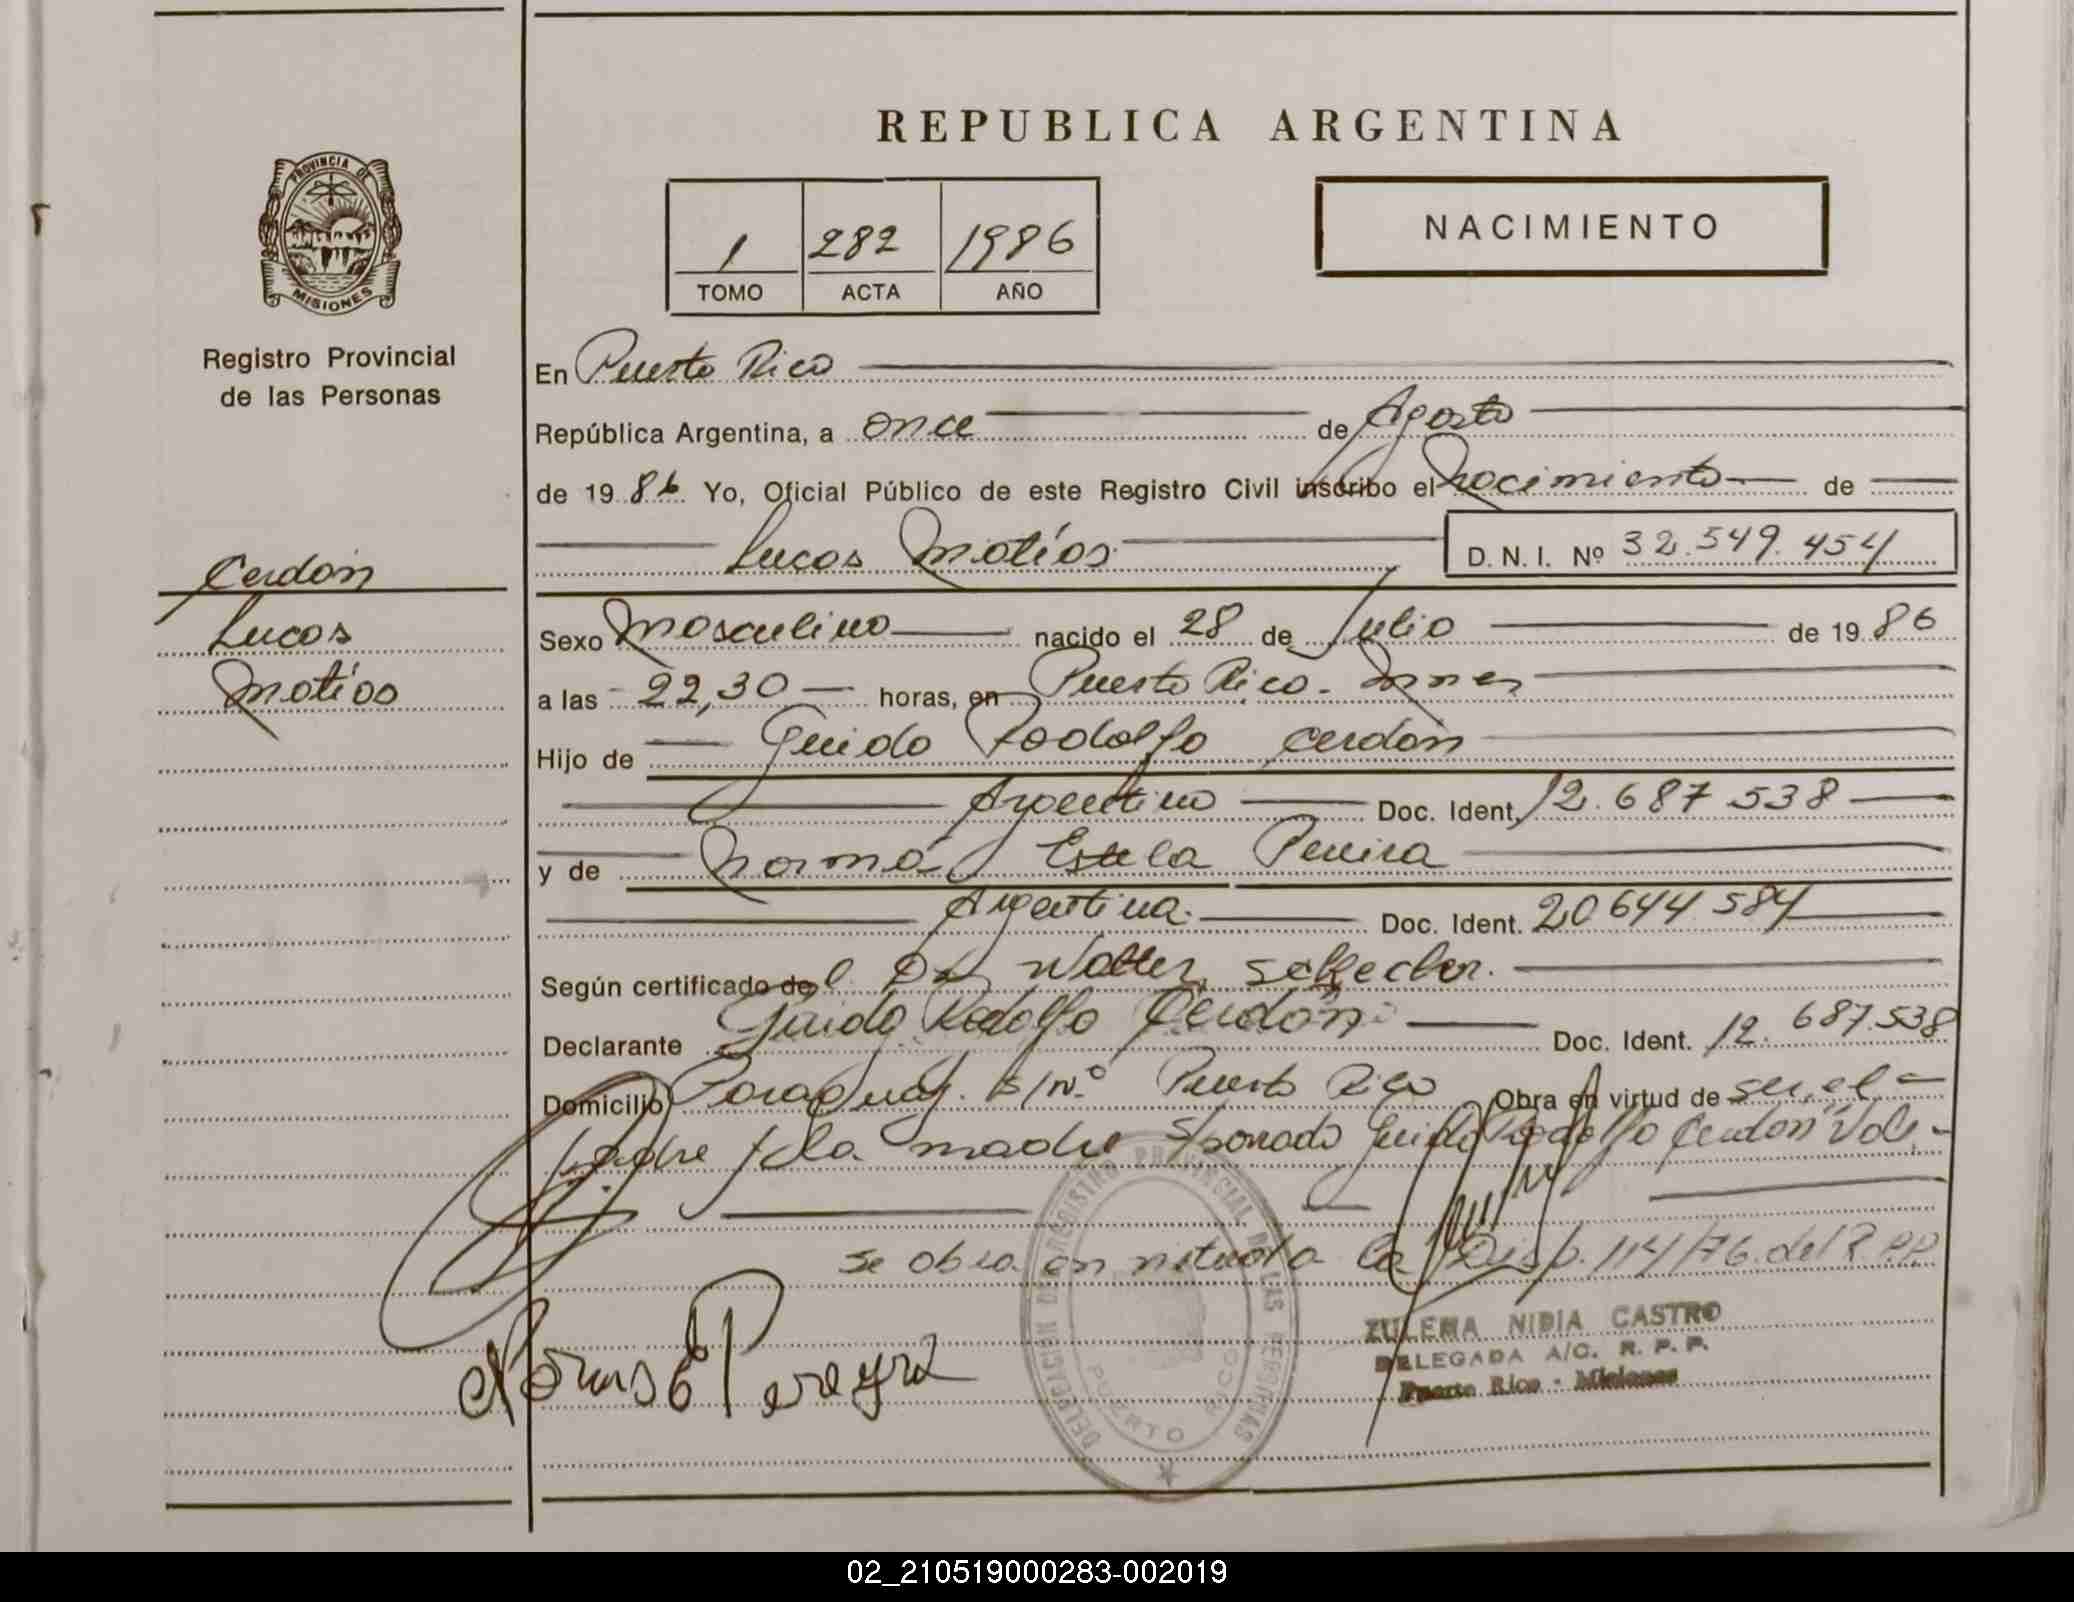 REPUBLICA ARGENTINA
PROVINCIA DE
MISIONES
Registro Provincial
de las Personas
1 282 1986
TOMO ACTA AÑO
NACIMIENTO
En Puerto Rico
República Argentina, a once de Agosto
de 1986 Yo, Oficial Público de este Registro Civil inscribo el Nacimiento de
Lucas Matías D. N. I. Nº 32.549.454
Cerdán
Lucas
Matías
Sexo Masculino nacido el 28 de Julio de 1986
a las 22,30 horas, en Puerto Rico - Mnes
Hijo de Guido Rodolfo Cerdán
Argentino Doc. Ident. 12.687.538
y de Norma Estela Pereira
Argentina. Doc. Ident. 20644584
Según certificado del Dr Walter
Declarante Guido Rodolfo Cerdán Doc. Ident. 12.687.538
Domicilio Paraguay. S/Nº Puerto Rico Obra en virtud de ser, el
padre y la madre Guido Rodolfo Cerdán Vale.-
se obra en virtud a la Disp. 114/76 del R.P.P.
Norma E Pereyra
DELEGACION DEL REGISTRO PROVINCIAL DE LAS PERSONAS
PUERTO RICO
ZULEMA NIDIA CASTRO
DELEGADA A/C. R. P. P.
Puerto Rico - Misiones
02_210519000283-002019